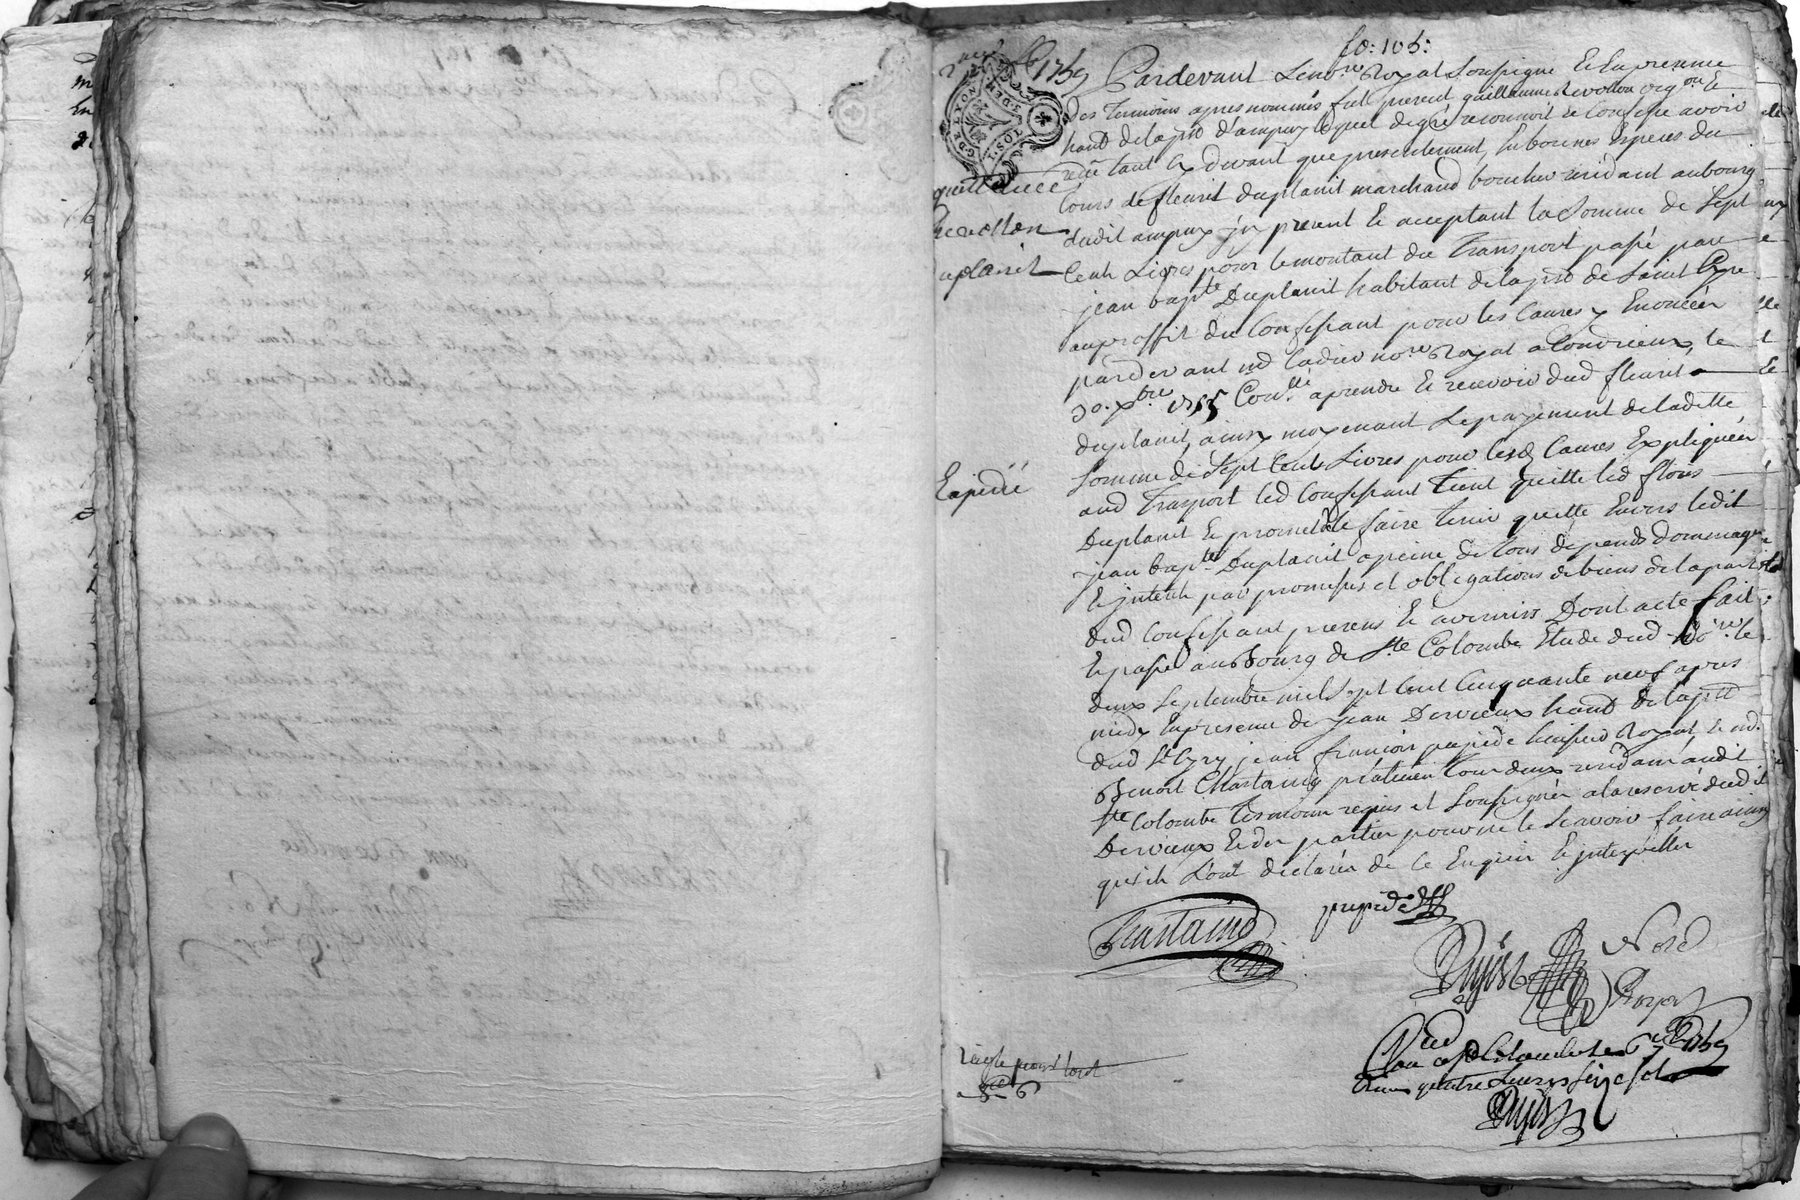 fo: 105:
2 7bre 1759
G. DE LYON
3. DEN
TOS. I
Pardevant Le no.re Royal Soussigné Et En presence
des Temoins apres nommés fut present guillaume Revollon org.on Et
hant de la p.sse d'ampuy Lequel de gré reconnoit Et Confesse avoir
receu tant Cy devant que presentement, En bonnes Especes du
Cours de fleurit duplanit marchand boucher residant au bourg
dudit ampuy jcy present Et acceptant la Somme de Sept
Cent Livres pour le montant du Transport passé par
jean bapt.te Duplanit habitant de la p.sse de Saint Cyre
au proffit du Confessant pour les Causes y Enoncées
pardevant m.e Cadier no.re Royal a Condrieux, le
30. xbre 1755 Con.llé a prendre Et recevoir dud fleurit
duplanit, ainsy moyenant Le payement de la ditte
Somme de Sept Cents Livres pour lesd Causes Expliquées
aud Transport led Confessant Tient quitte led floris
Duplanit Et promet le faire Tenir quitte Envers ledit
jean bapt.te Duplanit a peine de tous depends dommages
Et jnterets par promesses et obligations de biens de la part
dud Confessant presens Et avenirs Dont acte fait
Et passé au Bourg de S.te Colombe Etude dud no.re le
deux Septembre mil Sept Cent Cinquante neuf apres
midy En presence de jean Dervieux hant de la p.sse
dud St Cyre, jean francois prepide huissier Royal Et m.e
Benoit Chastaing praticien tous deux residants audit
Ste Colombe Tesmoins requis et Soussignés a la reserve dudit
Dervieux Et des parties pour ne le Scavoir faire ainsy
qu'ils L'ont declarés de Ce Enquis Et jnterpellés
quittance
Revollon
uplanit
Expedié
Chastaing
prepide
Dujast
No.re
Royal
Con.llé a Ste Colombe le 6 7bre 1759